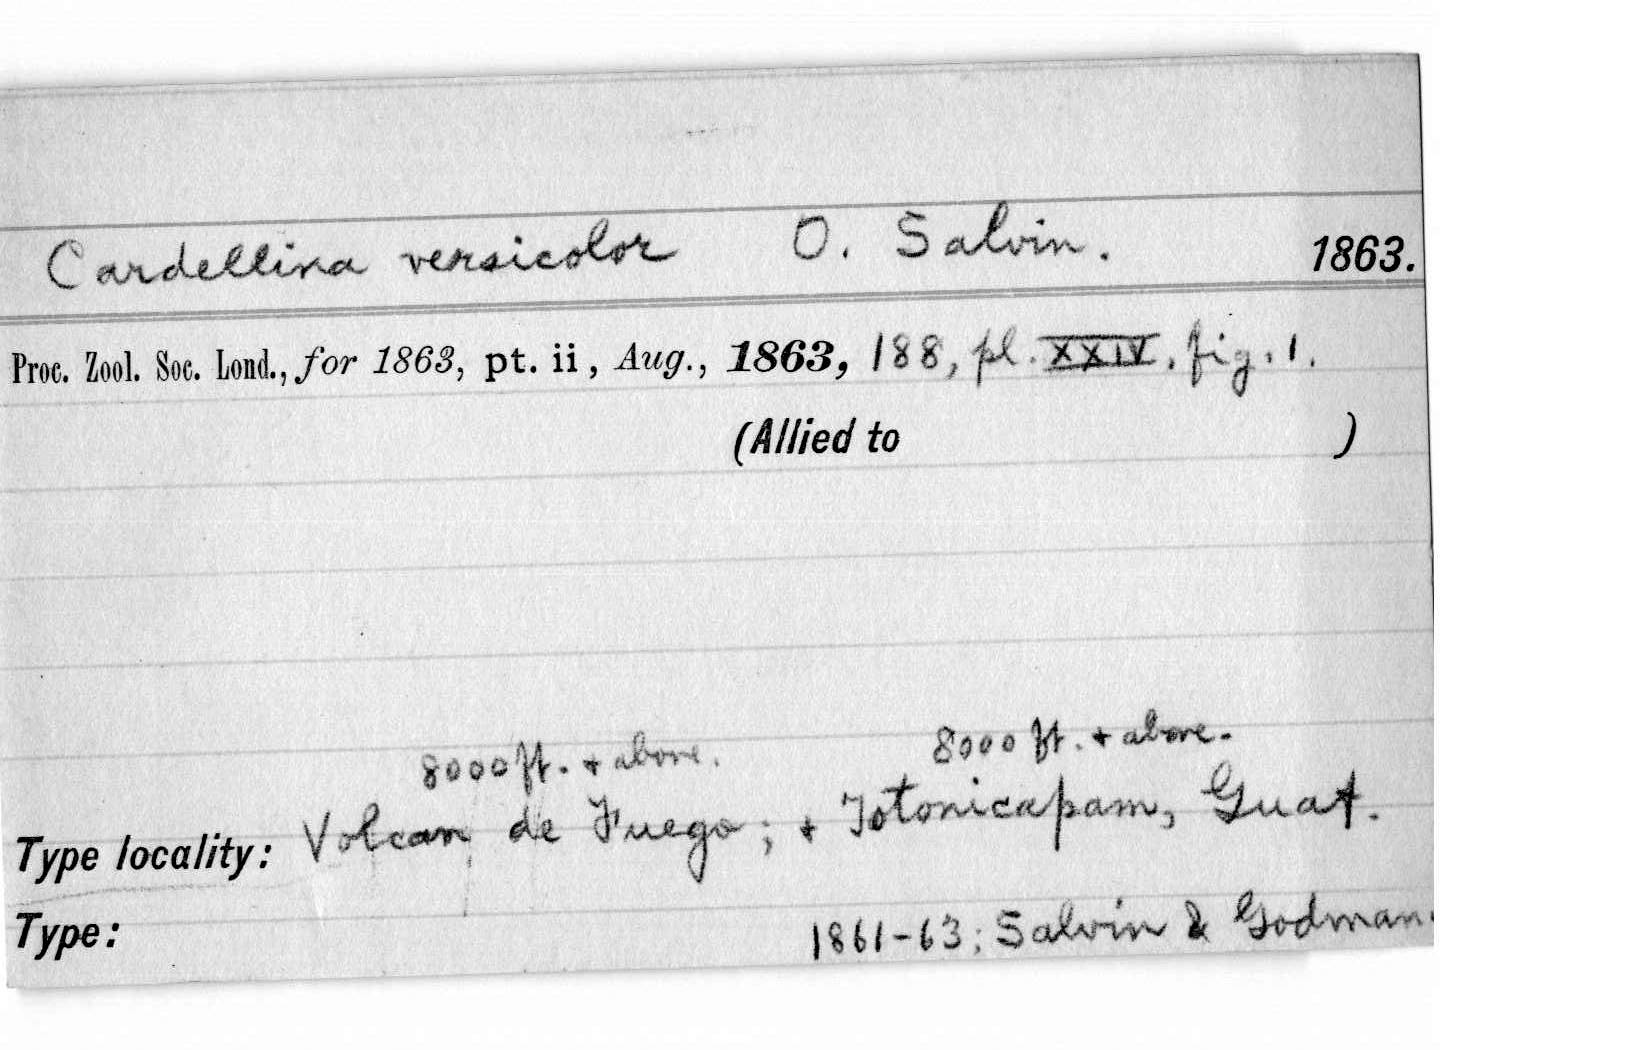 Cardellina versicolor O. Salvin. 1863.
Proc. Zool. Soc. Lond., for 1863, pt. ii, Aug., 1863, 188, pl. XXIV, fig. 1.
(Allied to )
8000 ft. + above. 8000 ft. + above.
Type locality: Volcan de Fuego; + Totonicapam, Guat.
Type: 1861-63; Salvin & Godman.